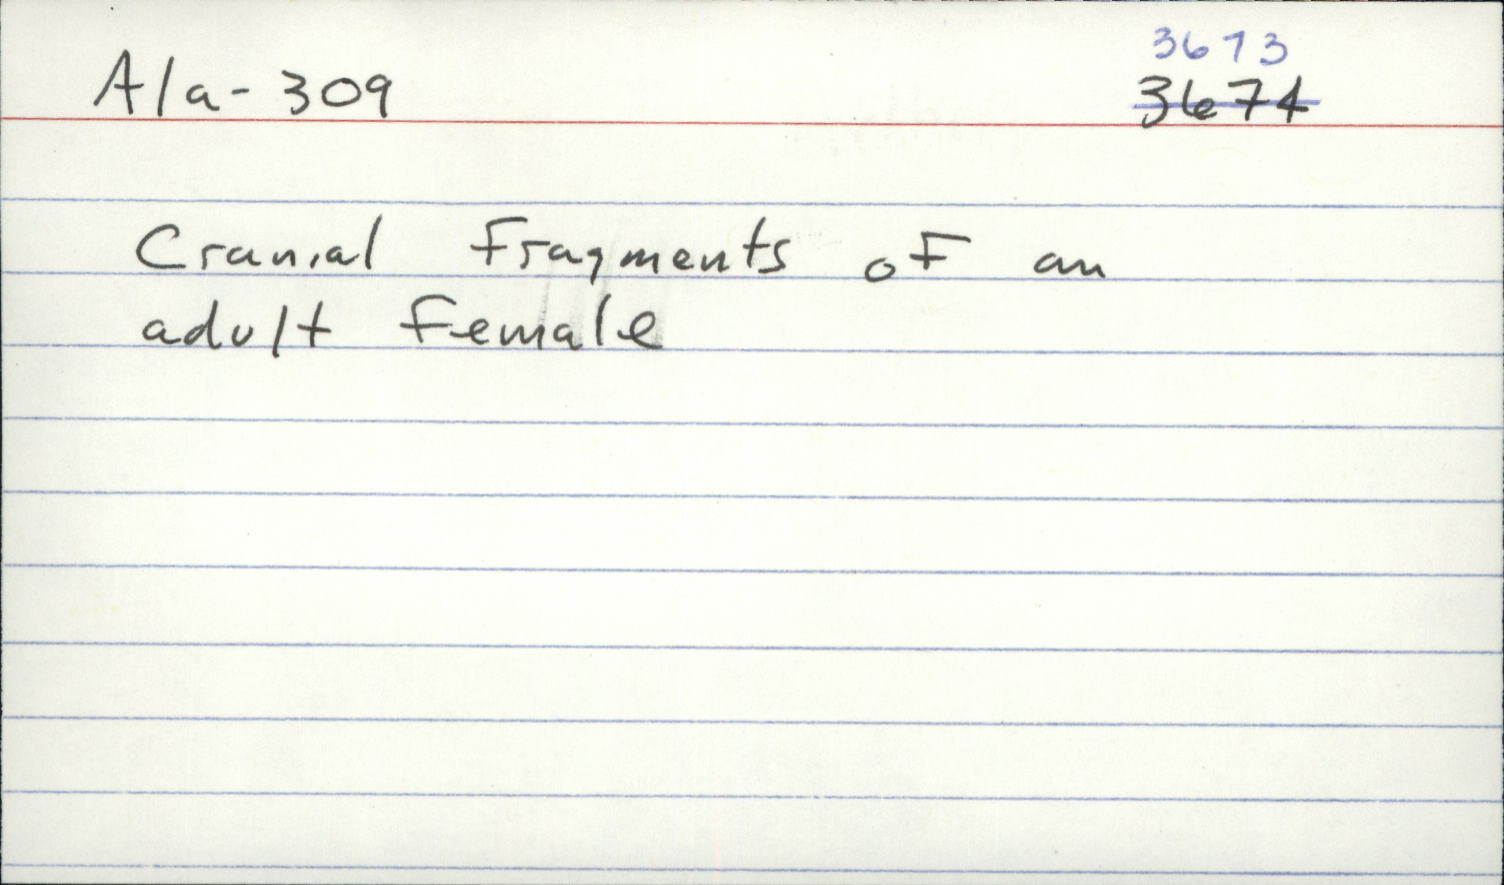 3673
Ala-309 3674
Cranial Fragments of an
adult Female